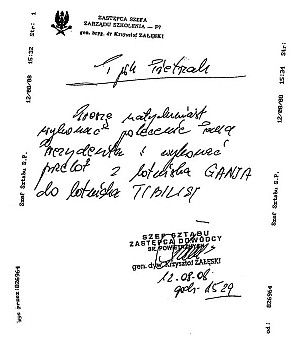 ZASTĘPCA SZEFA
ZARZĄDU SZKOLENIA – P7
gen. bryg. dr Krzysztof ZAŁĘSKI
ppłk Pietrzak
Proszę natychmiast
wykonać polecenie Pana
Prezydenta i wykonać
przelot z lotniska GANJA
do lotniska TIBILISI
SZEF SZTABU
ZASTĘPCA DOWÓDCY
SIŁ POWIETRZNYCH
gen. dyw. Krzysztof ZAŁĘSKI
12.08.08
godz. 1529
Str: 1
15:32
12/08/08
Szef Sztabu S.P.
826964
Str: 1
15:34
12/08/08
Szef Sztabu S.P.
826964
od: